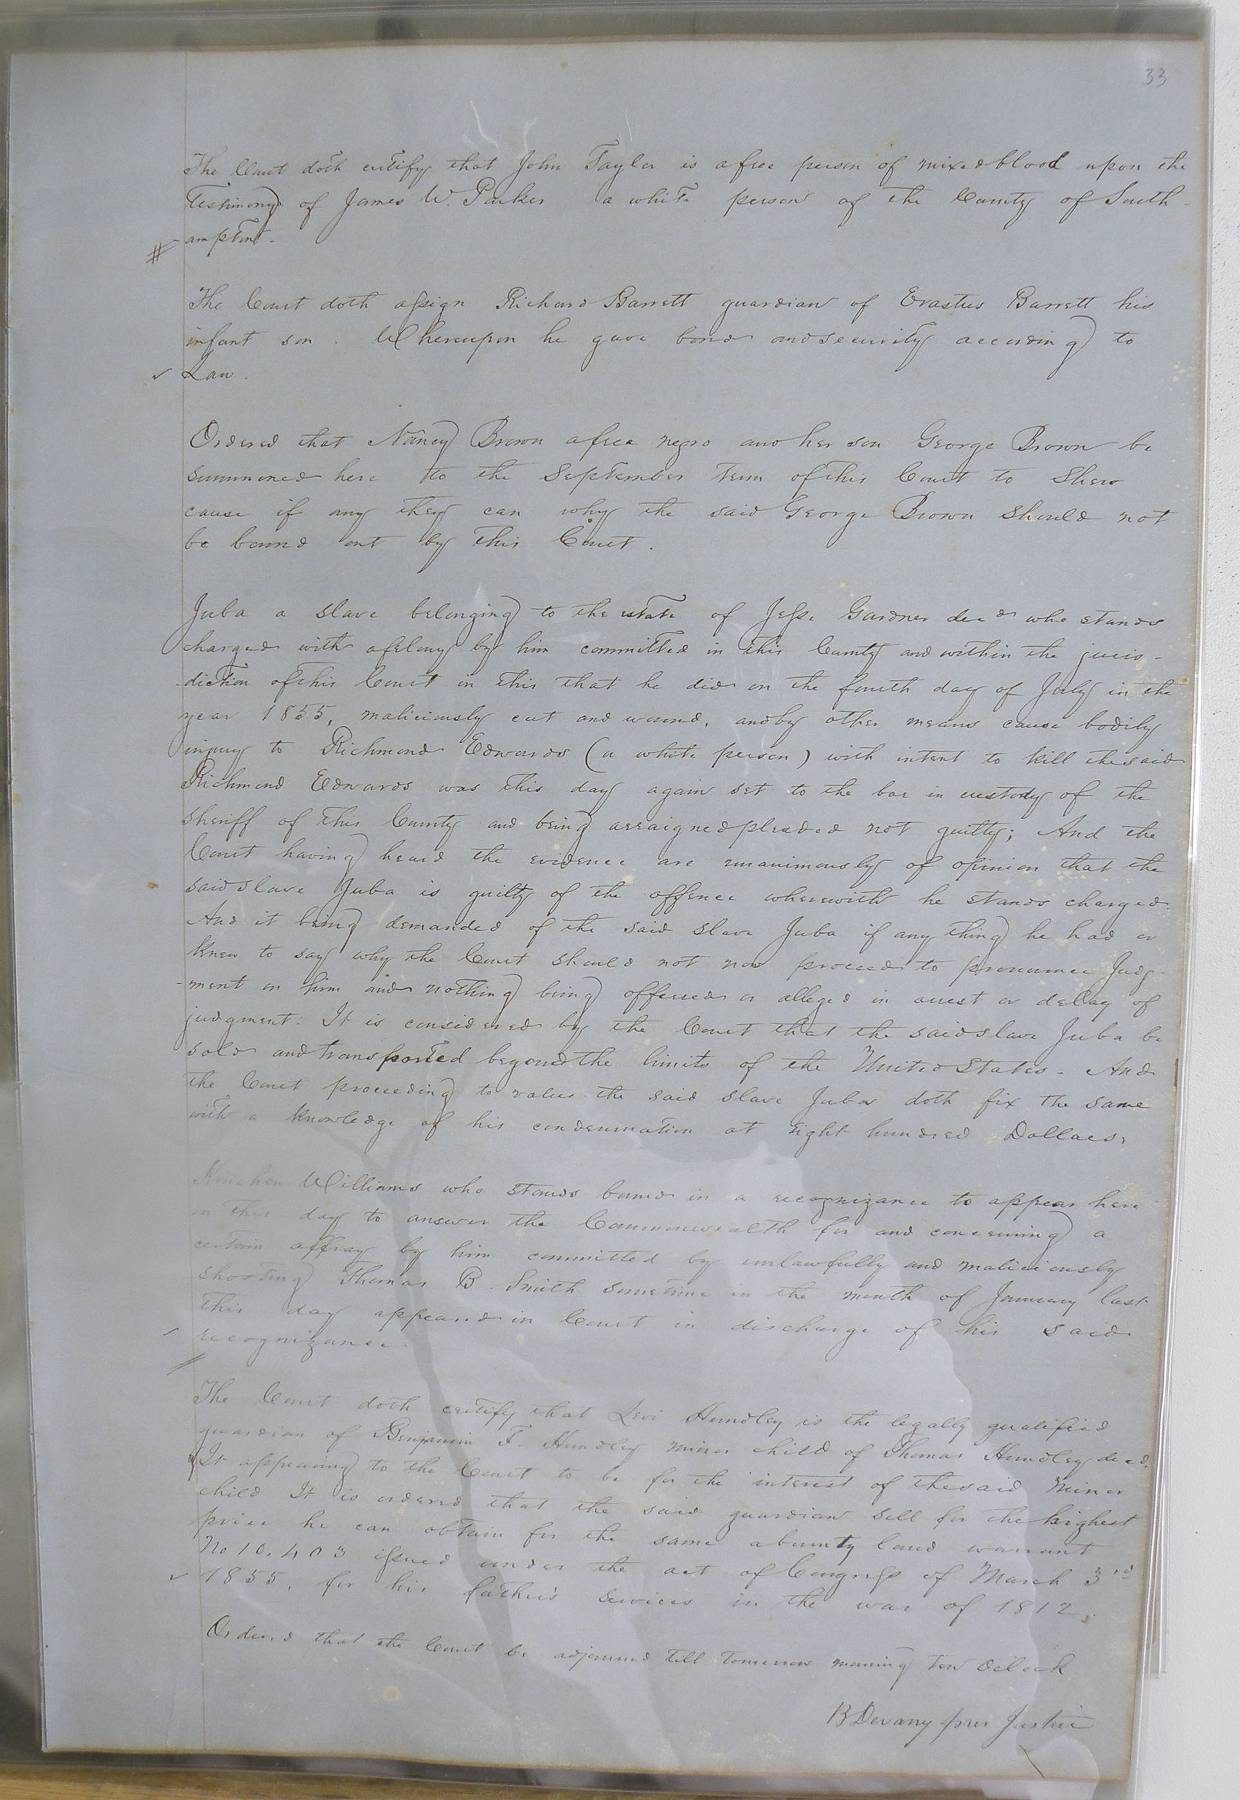 33
The Court doth certify that John Taylor is a free person of mixed blood upon the
Testimony of James W. Parker a white person of the County of South-
ampton.
The Court doth assign Richard Barrett guardian of Erastus Barrett his
infant son. Whereupon he gave bond and security according to
Law.
Ordered that Nancy Brown a free negro and her son George Brown be
summoned here to the September term of this Court to Shew
cause if any they can why the said George Brown should not
be bound out by this Court.
Juba a slave belonging to the estate of Jesse Gardner decd who stands
charged with a felony by him committed in this County and within the juris-
diction of this Court in this that he did on the fourth day of July in the
year 1855, maliciously cut and wound, and by other means cause bodily
injury to Richmond Edwards (a white person) with intent to kill the said
Richmond Edwards was this day again set to the bar in custody of the
sheriff of this County and being arraigned pleaded not guilty; And the
Court having heard the evidence are unanimously of opinion that the
said slave Juba is guilty of the offence wherewith he stands charged.
And it being demanded of the said slave Juba if any thing he had or
knew to say why the Court should not now proceed to pronounce Judg-
-ment on him and nothing being offered or alleged in arrest or delay of
judgment: It is considered by the Court that the said slave Juba be
sold and transported beyond the limits of the United States - And
the Court proceeding to value the said slave Juba doth fix the same
with a knowledge of his condemnation at eight hundred Dollars.
Williams who stands bound in a recognizance to appear here
on this day to answer the Commonwealth for and concerning a
certain affray by him committed by unlawfully and maliciously
shooting Thomas B. Smith sometime in the month of January last
this day appeared in Court in discharge of his said
recognizance.
The Court doth certify that Levi Hundley is the legally qualified
guardian of Benjamin F. Hundley minor child of Thomas Hundley decd.
It appearing to the Court to be for the interest of the said minor
child It is ordered that the said guardian sell for the highest
price he can obtain for the same a bounty land warrant
No 10.403 issued under the act of Congress of March 3rd
1855, for his father's services in the war of 1812.
Ordered that the Court be adjourned till tomorrow morning ten Oclock
B Devany pres Justice